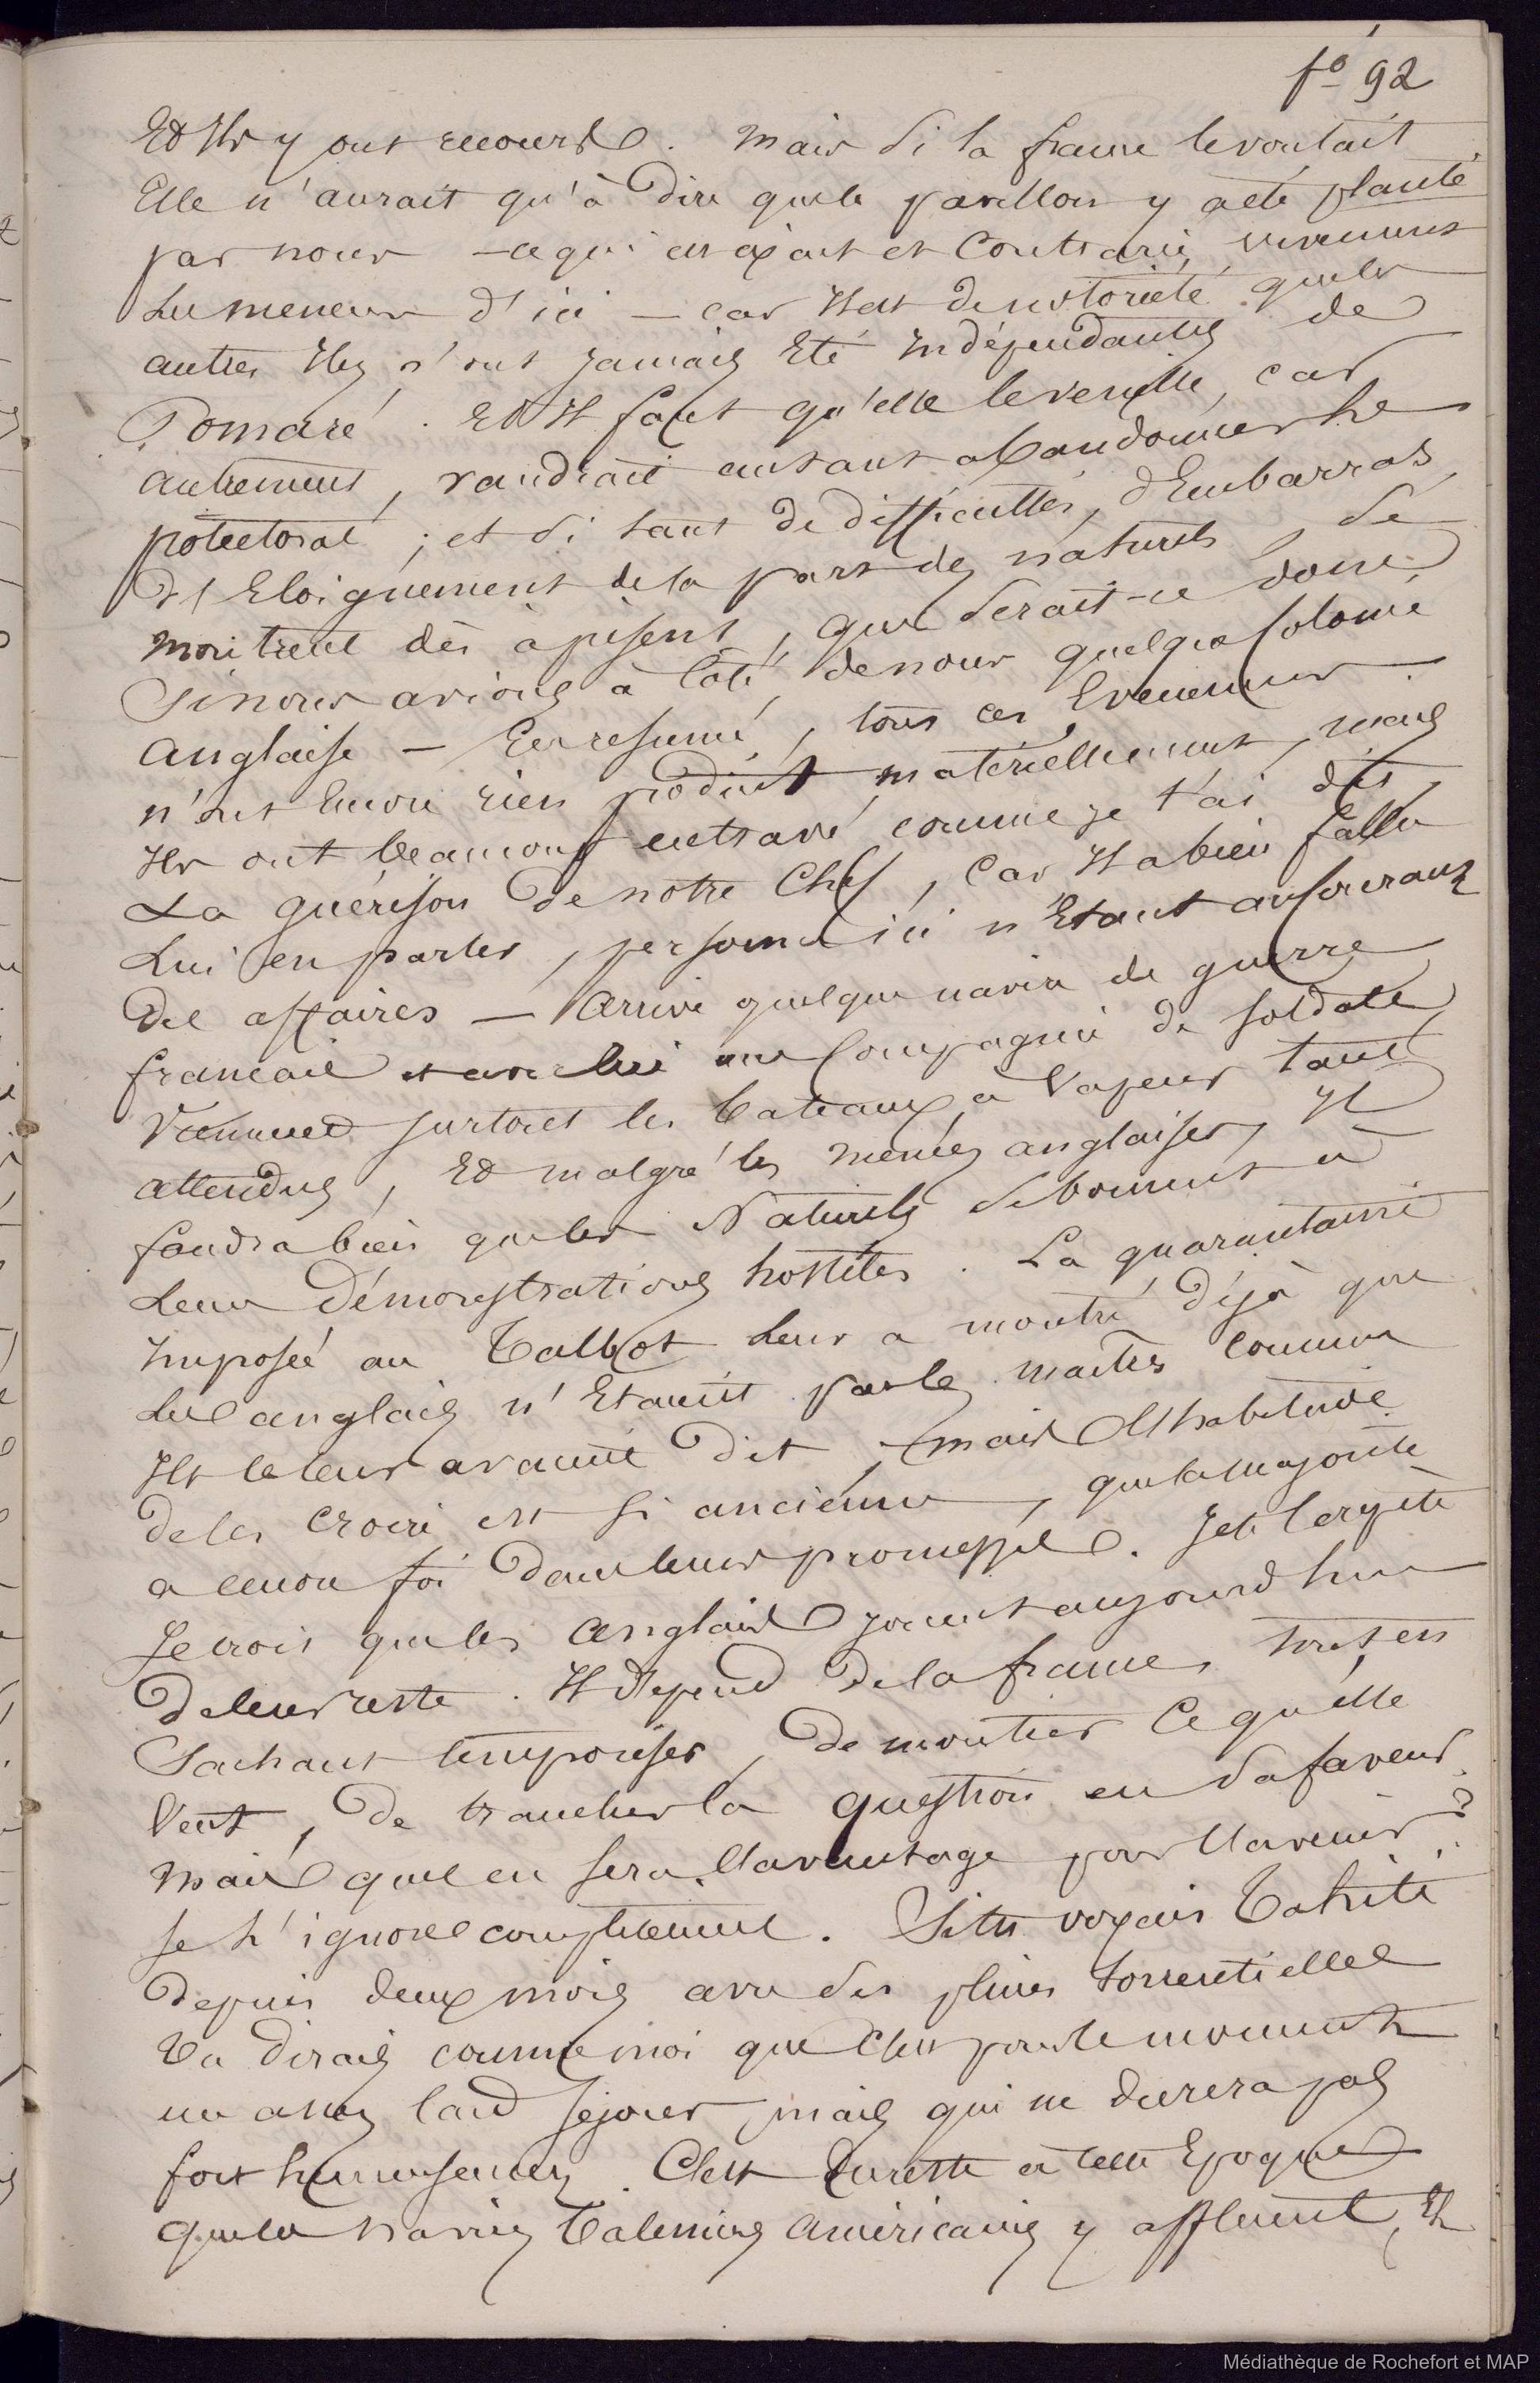 fº 92
Et Ils y ont recours. Mais si la france le voulait
Elle n'aurait qu'à dire que le pavillon y a été planté
par nous – ce qui est exact et contrarie vivement
Les meneurs d'ici – car Il est de notoriété que les
autres Iles n'ont jamais Eté Indépendantes de
Pomaré. Et Il faut qu'elle le veuille, car
autrement, vaudrait autant abandonner le
protectorat; et si tant de difficultés, d'Embarras,
d'Eloignement de la part des naturels, se
montrent dès à présent, que serait-ce donc
si nous avions à côté de nous quelque colonie
anglaise – En resumé, tous ces Evenemens
n'ont Encore rien produit matériellement, mais
Ils ont beaucoup entravé comme je t'ai dit,
La guérison de notre Chef, car Il a bien fallu
Lui en parler, personne ici n'Etant au courant
des affaires – Arrive quelque navire de guerre
francais et avec lui une Compagnie de soldats,
Viennent surtout les bateaux à Vapeur tant
attendus, Et malgré les menées anglaises, Il
faudra bien que les Naturels se bornent à
Leurs Démonstrations hostiles. La quarantaine
Imposée au Talbot Leur a montré déjà que
Les anglais n'Etaient pas les maîtres comme
Ils le leur avaient dit; mais l'habitude
de les croire est si ancienne, que la majorité
a encore foi dans leurs promesses. Je te le répète
Je crois que les Anglais jouent aujourd'hui
de leur reste. Il dépend de la france, tout en
Sachant temporiser, de montrer ce qu'elle
Veut, de trancher la question en sa faveur.
Mais quel en sera l'avantage pour l'avenir?
Je l'ignore completement. Si tu voyais Tahiti
depuis deux mois avec des pluies torrentielles
tu dirais comme moi que c'est pour le moment
un assez laid séjour, mais qui ne durera pas
fort heureusement. C'est du reste à cette Epoque
que les navires baleiniers américains y affluent, Et
Médiathèque de Rochefort et MAP